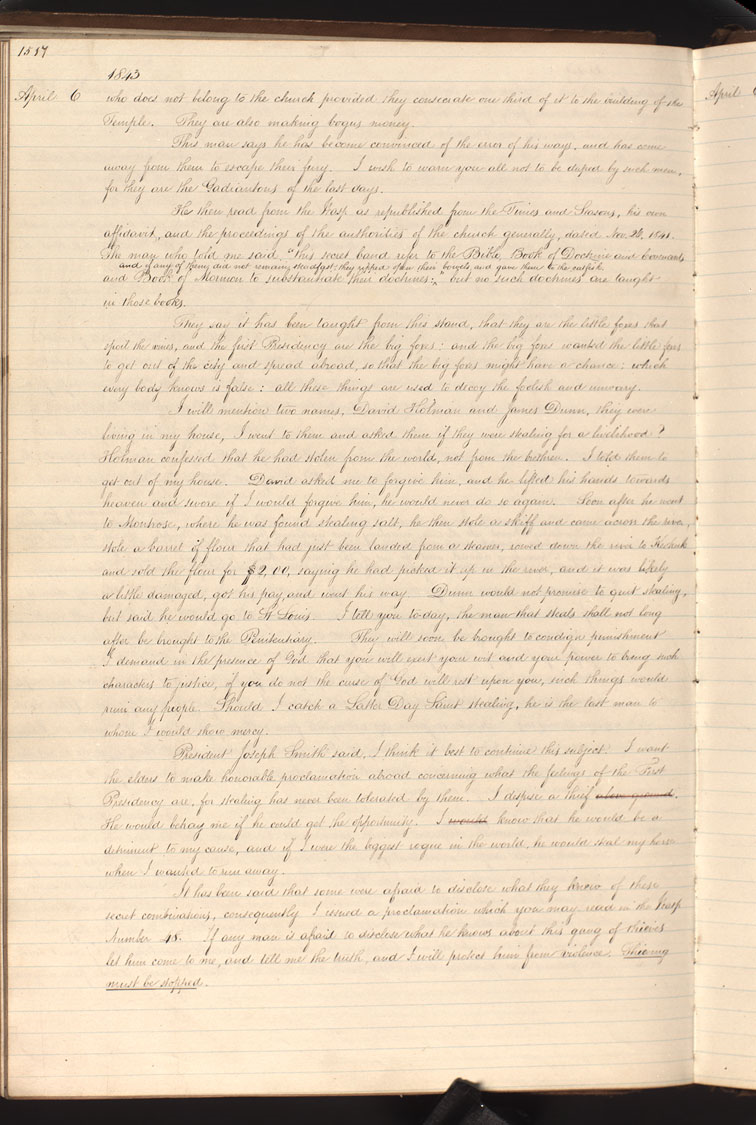 1517
1843
April 6 who does not belong to the church provided they consecrate one third of it to the building of the
Temple. They are also making bogus money.
This man says he has become convinced of the error of his ways, and has come
away from them to escape their fury. I wish to warn you all not to be duped by such men,
for they are the Gadiantons of the last days.
He then read from the Wasp as republished from the Times and Seasons, his own
affidavit, and the proceedings of the authorities of the church generally, dated Nov. 26, 1841.
The man who told me said, "This secret band refer to the Bible, Book of Doctrine and Covenants
and if any of them did not remain steadfast they ripped open their bowels, and gave them to the catfish
and Book of Mormon to substantiate their doctrines;" but no such doctrines are taught
in those books.
They say it has been taught from this stand, that they are the little foxes that
spoil the vines, and the first Presidency are the big foxes: and the big foxes wanted the little foxes
to get out of the city and spread abroad, so that the big foxes might have a chance: which
every body knows is false: all these things are used to decoy the foolish and unwary.
I will mention two names, David Holman and James Dunn, they were
living in my house, I went to them and asked them if they were stealing for a livelihood?
Holman confessed that he had stolen from the world, not from the brethren. I told them to
get out of my house. David asked me to forgive him, and he lifted his hands towards
heaven and swore if I would forgive him, he would never do so again. Soon after he went
to Montrose, where he was found stealing salt, he then stole a skiff and came across the river,
stole a barrel of flour that had just been landed from a steamer, rowed down the river to Keokuk
and sold the flour for $2,00, saying he had picked it up in the river, and it was likely
a little damaged, got his pay, and went his way. Dunn would not promise to quit stealing,
but said he would go to St Louis. I tell you to-day, the man that steals shall not long
after be brought to the Penitentiary. They will soon be brought to condign punishment
I demand in the presence of God that you will exert your wit and your power to bring such
characters to justice, if you do not the curse of God will rest upon you, such things would
ruin any people. Should I catch a Latter Day Saint stealing, he is the last man to
whom I would show mercy.
President Joseph Smith said, I think it best to continue this subject. I want
the elders to make honorable proclamation abroad concerning what the feelings of the First
Presidency are, for stealing has never been tolerated by them. I despise a thief above ground.
He would betray me if he could get the opportunity. I would know that he would be a
detriment to my cause, and if I were the biggest rogue in the world, he would steal my horse
when I wanted to run away.
It has been said that some were afraid to disclose what they know of these
secret combinations, consequently I issued a proclamation which you may read in the Wasp
Number 48. If any man is afraid to disclose what he knows about this gang of thieves
let him come to me, and tell me the truth, and I will protect him from violence. Thieving
must be stopped.
April